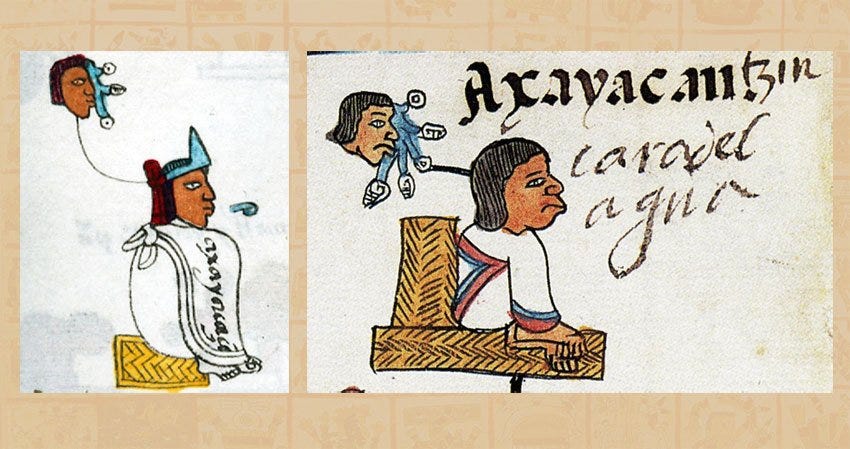 axayacaçi
Axayacantzin
cara del
agua